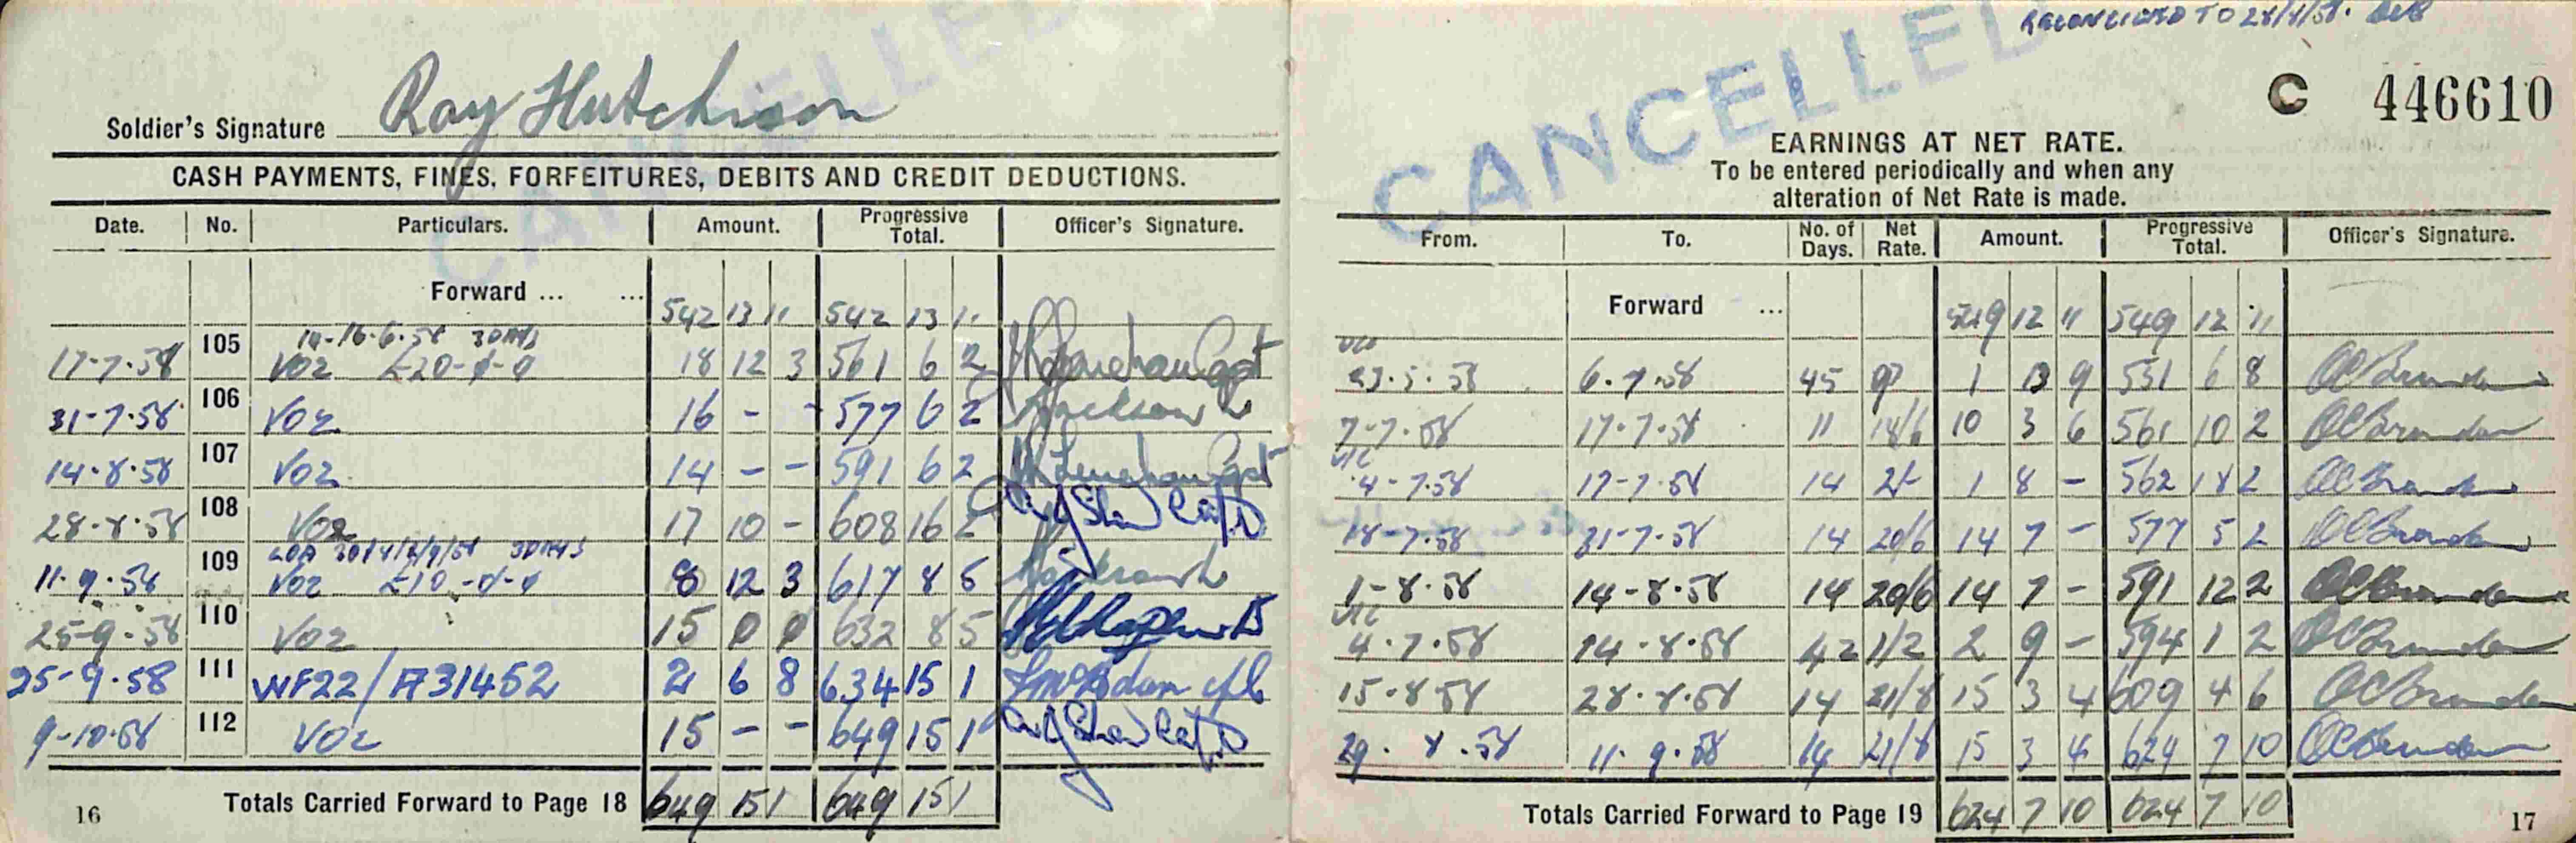 CANCELLED
Soldier's Signature Ray Hutchison
CASH PAYMENTS, FINES, FORFEITURES, DEBITS AND CREDIT DEDUCTIONS.
Date. No. Particulars. Amount. Progressive Total. Officer's Signature.
Forward ... ... 542 13 11 542 13 11
14-16.6.58 3 DAYS
17-7-58 105 VOZ £20-0-0 18 12 3 561 6 2
31-7-58 106 VOZ 16 - - 577 6 2
14-8-58 107 VOZ 14 - - 591 6 2
28-8-58 108 VOZ 17 10 - 608 16 2
11-9-58 109 VOZ £10-0-0 8 12 3 617 8 5
25-9-58 110 VOZ 15 0 0 632 8 5
25-9-58 111 WF22/A31452 2 6 8 634 15 1
9-10-58 112 VOZ 15 - - 649 15 1
Totals Carried Forward to Page 18 649 15 1 649 15 1
16
RECONCILED TO
CANCELLED
C 446610
EARNINGS AT NET RATE.
To be entered periodically and when any
alteration of Net Rate is made.
From. To. No. of Days. Net Rate. Amount. Progressive Total. Officer's Signature.
Forward ... 549 12 11 549 12 11
23.5.58 6.7.58 45 9 1 13 9 551 6 8
7-7-58 17-7-58 11 18/6 10 3 6 561 10 2
4-7-58 17-7-58 14 2/- 1 8 - 562 18 2
18-7-58 31-7-58 14 20/6 14 7 - 577 5 2
1-8-58 14-8-58 14 20/6 14 7 - 591 12 2
4-7-58 14-8-58 42 1/2 2 9 - 594 1 2
15-8-58 28-8-58 14 21/8 15 3 4 609 4 6
29-8-58 11-9-58 14 21/8 15 3 4 624 7 10
Totals Carried Forward to Page 19 624 7 10 624 7 10
17